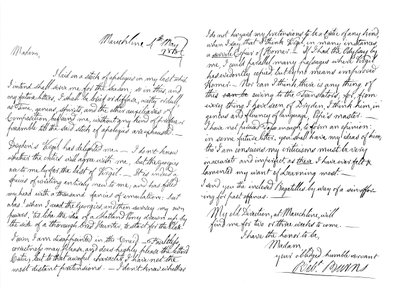 Mauchline 4th May
1788
Madam,
I hid in a stock of apologies in my last which
I intend shall serve me for the season, so in this and
my future letters, I shall be brief or diffuse, witty or dull,
as time, genius, spirits, and the other auxiliaries of
Composition, befriend me, without any kind of
the said stock of apologies are
Dryden's Virgil has delighted me. — I don't know
whether the critics will agree with me, but the Georgics
are to me by far the best of Virgil. — It is indeed a
species of writing entirely new to me, and has filled
my head with a thousand fancies of emulation; but
alas! when I read the Georgics and then survey my own
powers, 'tis like the idea of a Shetland Pony drawn up by
the side of a thorough bred Hunter, to start for the Plate.
I own, I am disappointed in the Eneid. — Faultless
correctness may please, and does highly please the lettered
Critic; but to that awful character I have not the
most distant pretensions. — I don't know whether
I do not hazard my pretensions to be a Critic of any kind
when I say that I think Virgil, in many instances
a servile Copier of Homer. — If I had the Odyssey by
me, I could parallel many passages where Virgil
has evidently copied but by no means improved
Homer. — Nor can I think there is any thing of
this owing to the Translators; for, from
every thing I have seen of Dryden, I think him, in
genius and fluency of language, Pope's master. —
I have not perused Tasso enough to form an opinion:
in some future letter, you shall have my ideas of him;
tho' I am conscious my criticisms must be very
inaccurate and imperfect, as there I have ever felt &
lamented my want of Learning most. —
I send you the inclosed Bagatelles by way of a sin offer-
ing for past offences. —
My old Direction, at Mauchline, will
find me for two or three weeks to come. —
I have the honor to be,
Madam
your obliged humble servant
Robt. Burns